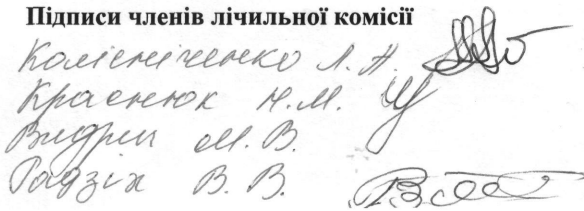 Підписи членів лічильної комісії
Колісніченко Л. А.
Краснюк Н.М.
М. В.
Радзіх В. В.